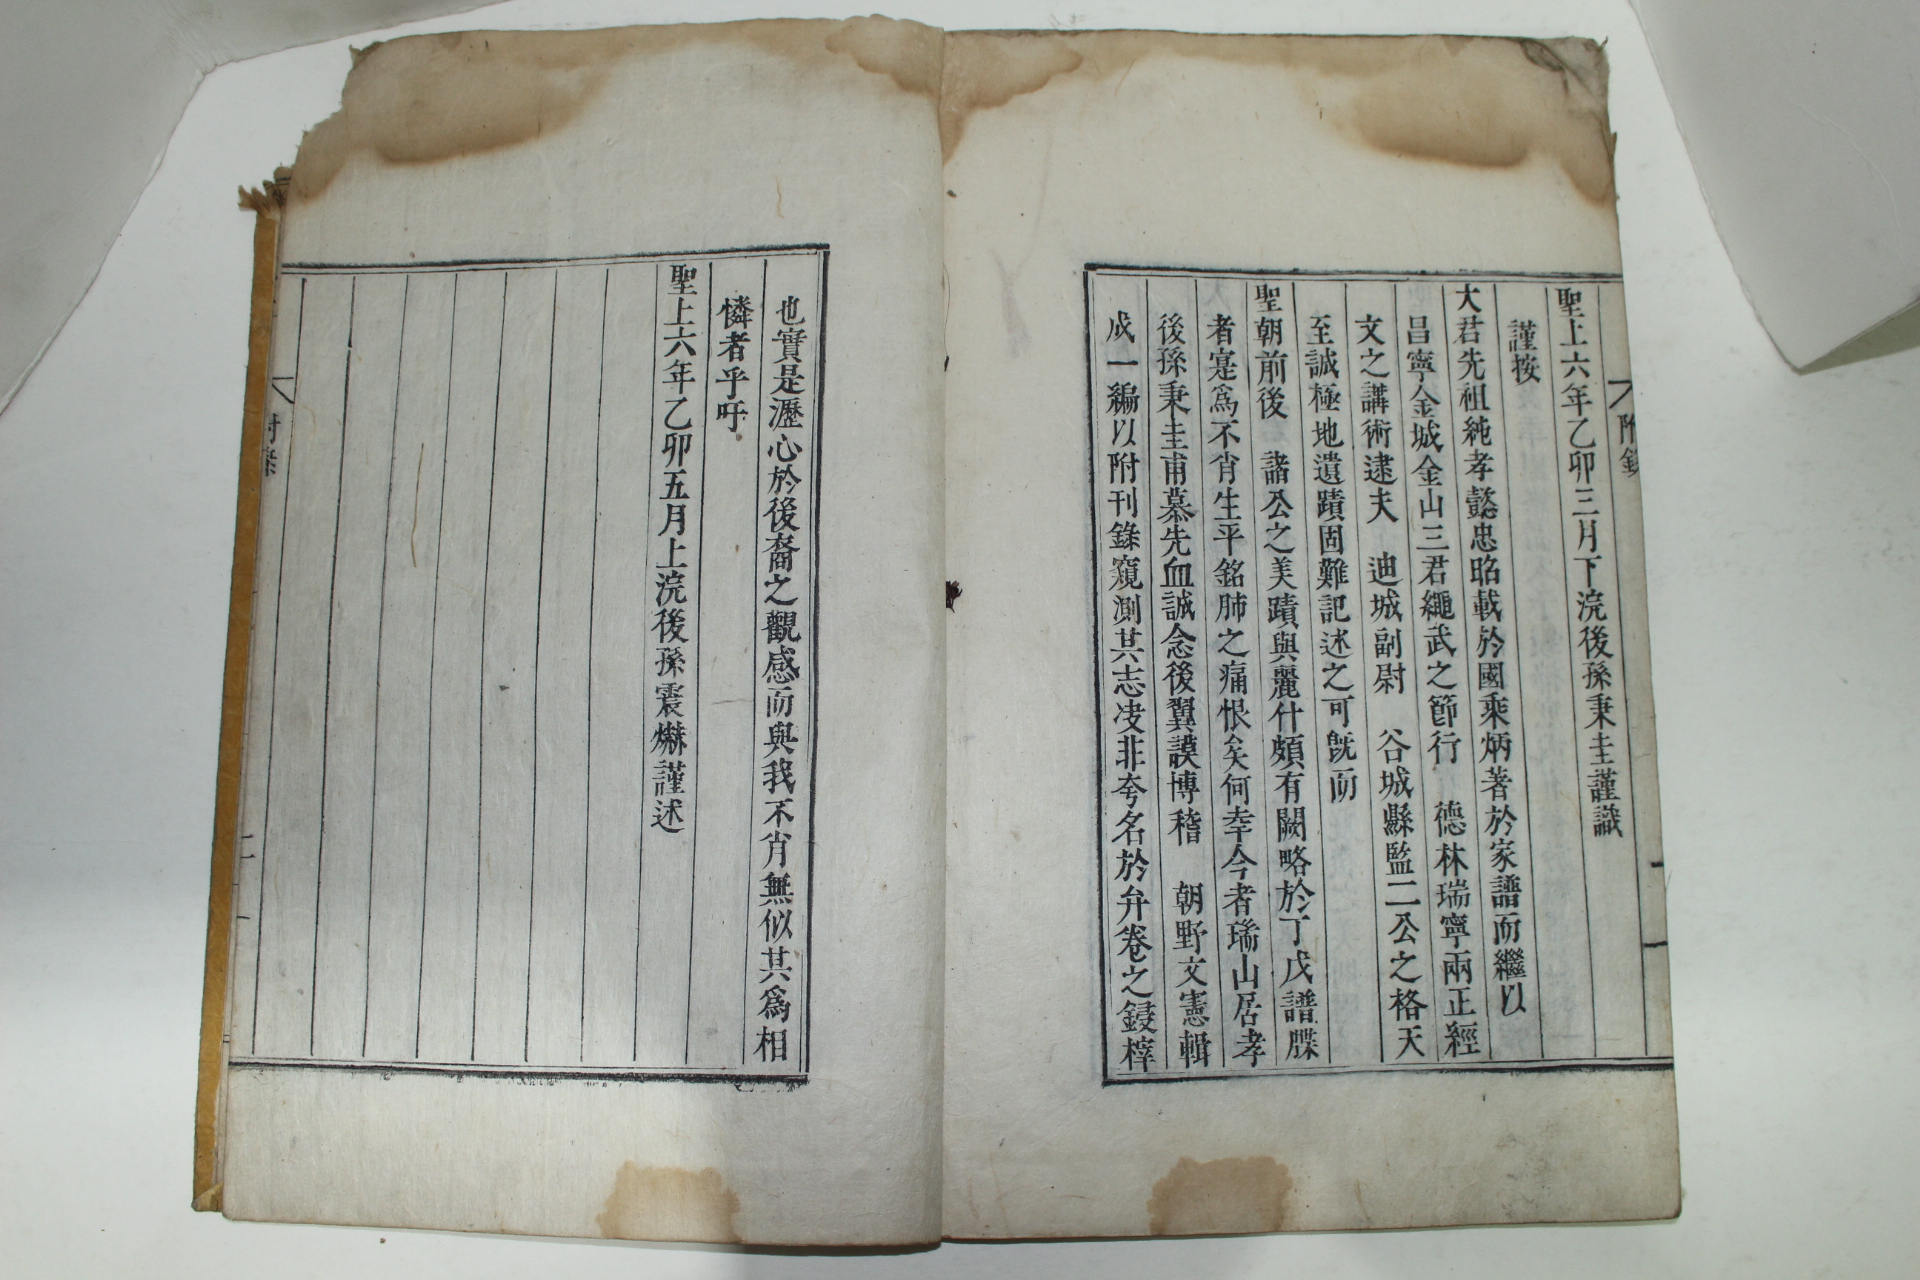 附錄
聖上六年乙卯三月下浣後孫秉圭謹識
謹按
大君先祖純孝懿忠昭載於國乘炳著於家譜而繼以
昌寧金城金山三君繩武之節行 德林瑞寧兩正經
文之講術逮夫 迪城副尉 谷城縣監二公之格天
至誠極地遺蹟固難記述之可旣而
聖朝前後 諸公之美蹟與麗什頗有闕略於丁戊譜牒
者寔爲不肖生平銘肺之痛恨矣何幸今者瑞山居孝
後孫秉圭甫慕先血誠念後翼謨博稽 朝野文憲輯
成一編以附刊錄窺測其志决非夸名於弁卷之鋟梓
也實是瀝心於後裔之觀感而與我不肖無似其爲相
憐者乎吁
聖上六年乙卯五月上浣後孫震爀謹述
附錄
二